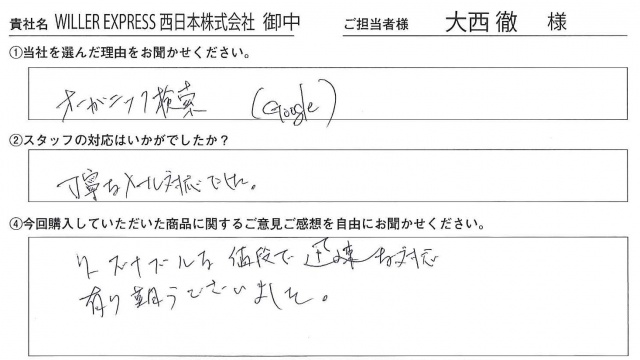 貴社名 WILLER EXPRESS 西日本株式会社 御中 ご担当者様 大西徹 様
①当社を選んだ理由をお聞かせください。
オーガニック検索 (Google)
②スタッフの対応はいかがでしたか？
丁寧なメール対応でした。
④今回購入していただいた商品に関するご意見ご感想を自由にお聞かせください。
リーズナブルな値段で迅速な対応
有り難うございました。